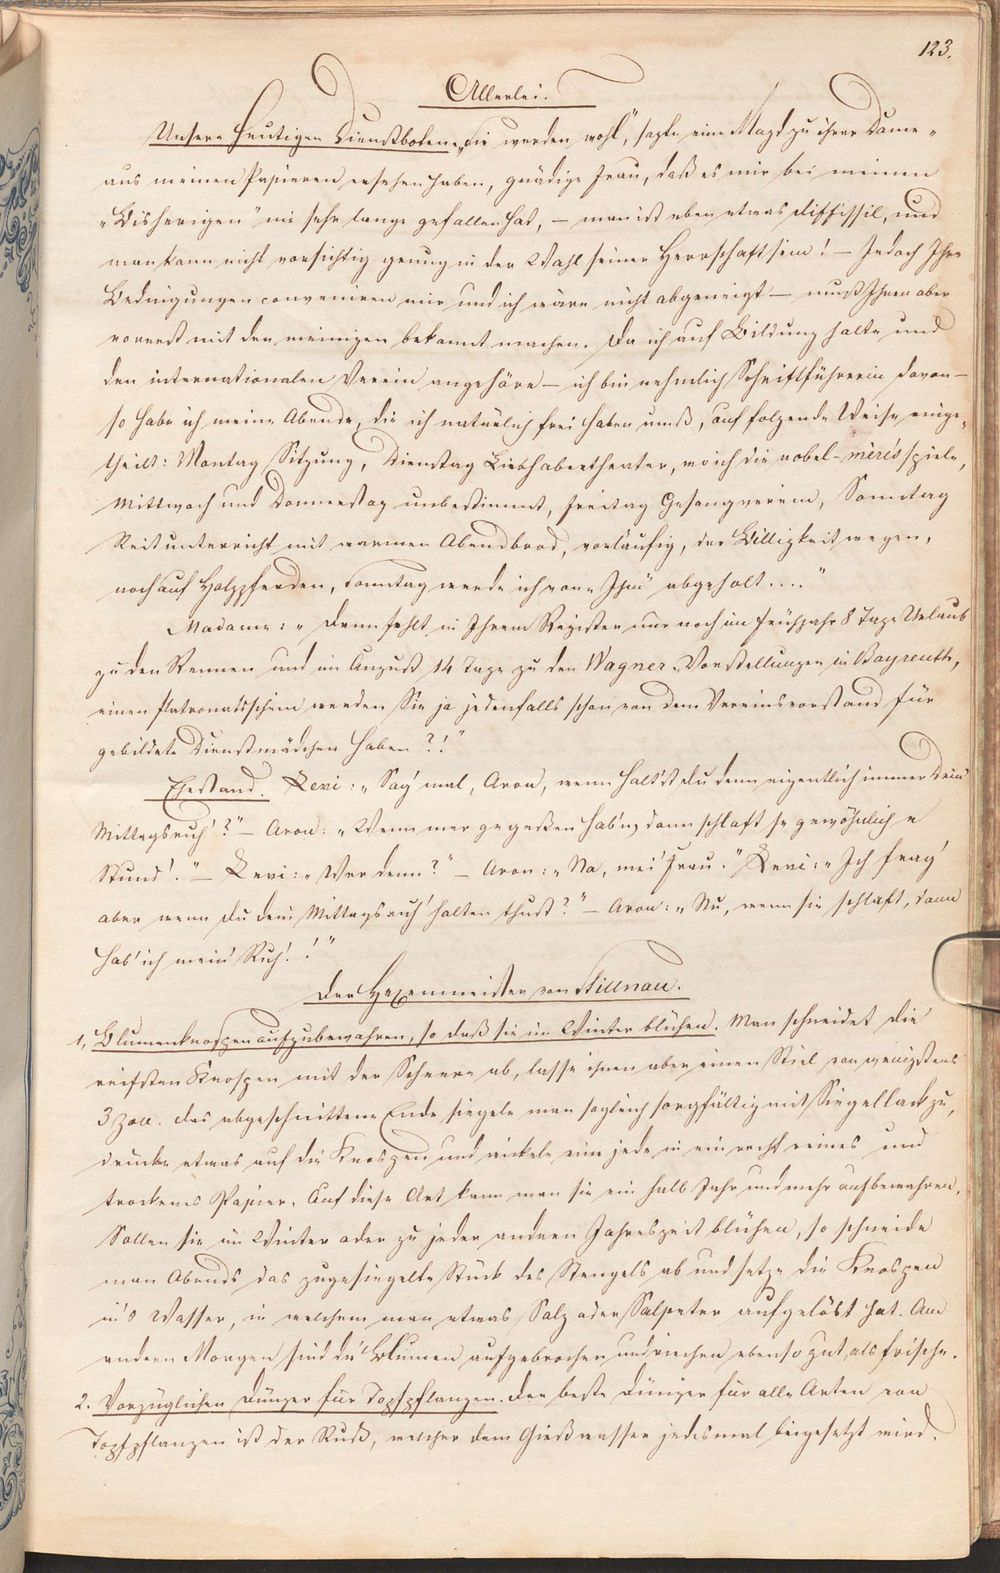 123.
Allerlei.
Unsere heutigen Dienstboten. „Sie werden wohl", sagte eine Magd zu ihrer Dame „
aus meinen Papieren ersehen haben, gnädige Frau, daß es mir bei meinen
„Bisherigen" nie sehr lange gefallen hat, — man ist eben etwas diffissil, und
man kann nicht vorsichtig genug in der Wahl seiner Herrschaft sein! — Jedoch Ihre
Bedingungen conveniren mir und ich wäre nicht abgeneigt — muß Ihnen aber
vorerst mit den meinigen bekannt machen. Da ich auf Bildung halte und
den internationalen Verein angehöre — ich bin nehmlich Schriftführerin davon —
so habe ich meine Abende, die ich natürlich frei haben muß, auf folgende Weise einge-
theilt: Montag Sitzung, Dienstag Liebhabertheater, wo ich die nobel-mérés spiele,
Mittwoch und Donnerstag unbestimmt, Freitag Gesangverein, Samstag
Reitunterricht mit warmen Abendbrod, vorläufig, der Billigkeit wegen,
noch auf Holzpferden, Sonntag werde ich von „Ihm" abgeholt...."
Madame: „Dann fehlt in Ihrem Register nur noch im Frühjahr 8 Tage Urlaub
zu den Rennen und im August 14 Tage zu den Wagner-Vorstellungen in Bayreuth,
einen Patronatsschein werden Sie ja jedenfalls schon von dem Vereinsvorstand für
gebildete Dienstmädchen haben?!"
Ehestand. Levi: „Sag' mal, Aron, wenn halt'st du denn eigentlich immer Dein'
Mittagsruh'?" — Aron: „Wenn mer gegeßen hab'n, dann schlaft se gewöhnlich e
Stund'." — Levi: „Wer denn?" — Aron: „Na, mei' Frau." Levi: „Ich frag'
aber wenn du dein' Mittagsruh' halten thust?" — Aron: „Nu, wenn sie schlaft, dann
hab' ich mein' Ruh'!"
Der Hexenmeister von Stillnau.
1, Blumenknospen aufzubewahren, so daß sie im Winter blühen. Man schneidet die
reifsten Knospen mit der Scheere ab, lasse ihnen aber einen Stiel von wenigstens
3 Zoll. Das abgeschnittene Ende siegele man sogleich sorgfältig mit Siegellack zu,
drücke etwas auf die Knospen und wickele eine jede in ein recht reines und
trockenes Papier. Auf diese Art kann man sie ein halb Jahr und mehr aufbewahren.
Sollen sie im Winter oder zu jeder andern Jahreszeit blühen, so schneide
man Abends das zugesiegelte Stück des Stengels ab und setze die Knospen
in's Wasser, in welchem man etwas Salz oder Salpeter aufgelößt hat. Am
andern Morgen sind die Blumen aufgebrochen und riechen ebenso gut, als frische.
2. Vorzüglichen Dünger für Topfpflanzen. Der beste Dünger für alle Arten von
Topfpflanzen ist der Ruß, welcher dem Gießwasser jedesmal beigesetzt wird.